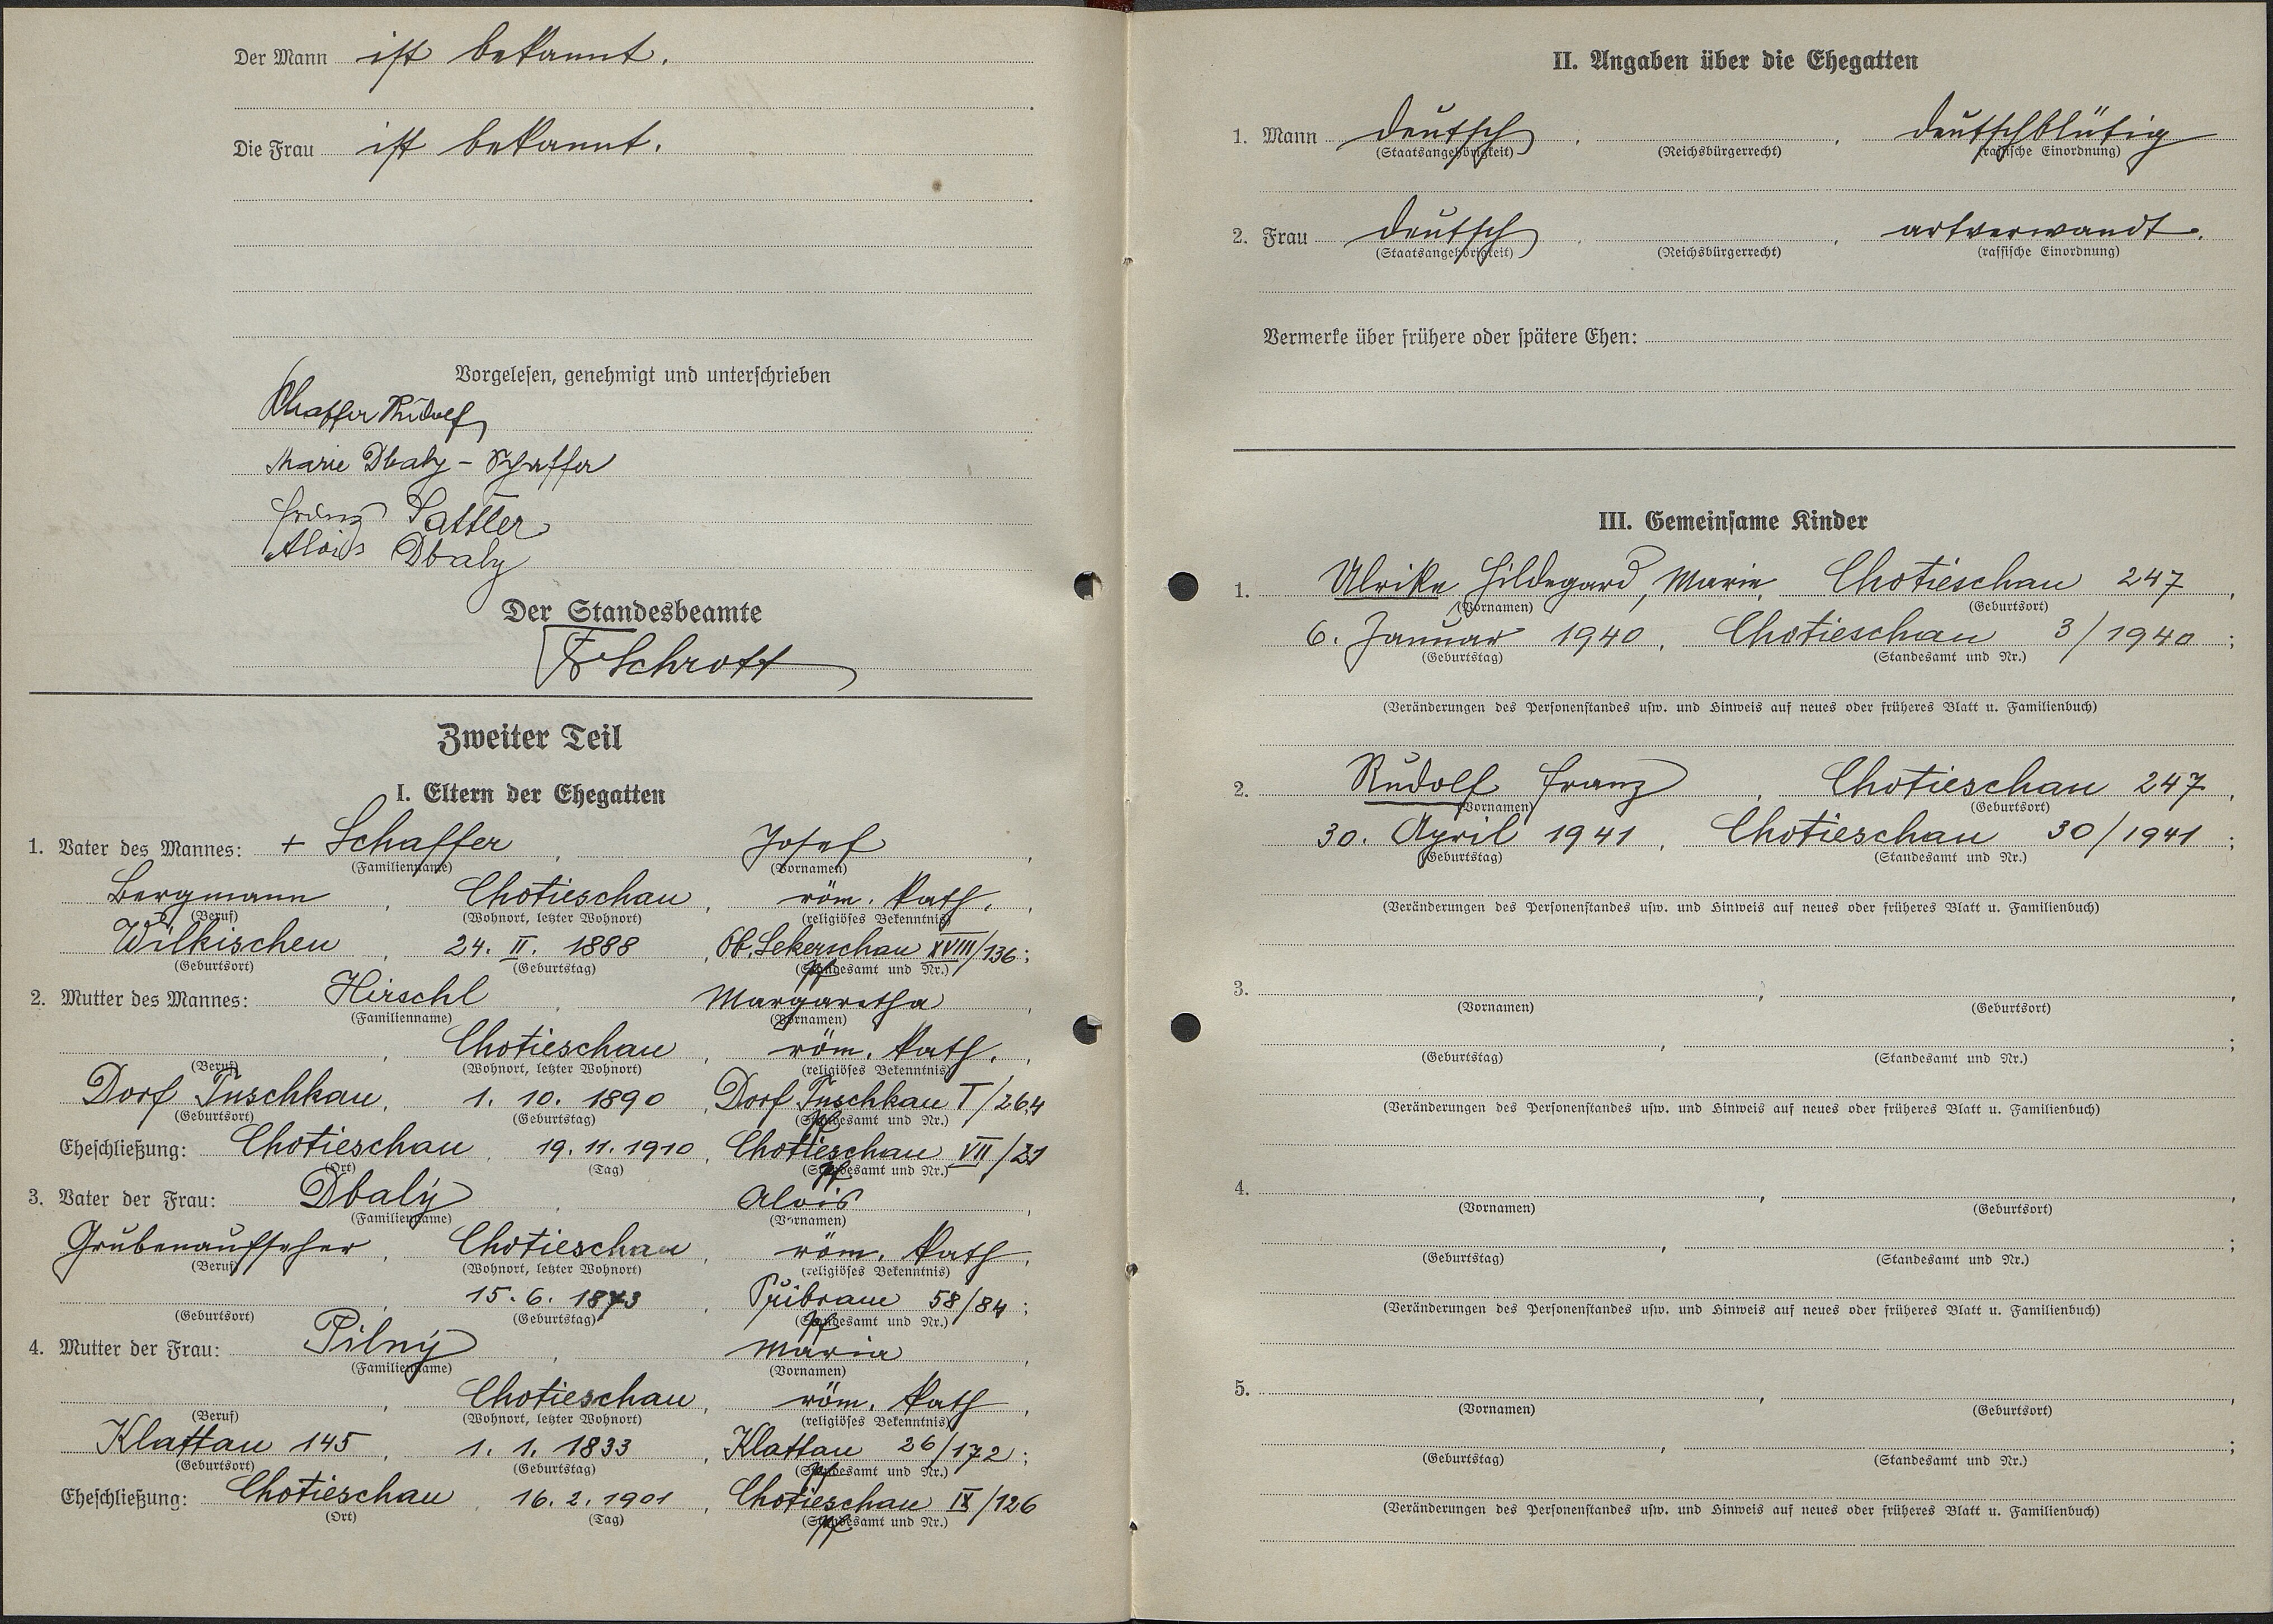 Der Mann ist bekannt.
Die Frau ist bekannt.
Vorgelesen, genehmigt und unterschrieben
Schaffer Rudolf
Marie Dbaly - Schaffer
Franz Sattler
Alois Dbaly
Der Standesbeamte
F Schrott
Zweiter Teil
I. Eltern der Ehegatten
1. Vater des Mannes: + Schaffer, Josef,
(Familienname) (Vornamen)
Bergmann, Chotieschau, röm. kath.,
(Beruf) (Wohnort, letzter Wohnort) (religiöses Bekenntnis)
Wilkischen, 24. II. 1888, Ob. Sekerschau XVIII/136;
(Geburtsort) (Geburtstag) (Standesamt und Nr.)
2. Mutter des Mannes: Hirschl, Margaretha,
(Familienname) (Vornamen)
, Chotieschau, röm. kath.,
(Beruf) (Wohnort, letzter Wohnort) (religiöses Bekenntnis)
Dorf Tuschkau, 1. 10. 1890, Dorf Tuschkau I/264
(Geburtsort) (Geburtstag) (Standesamt und Nr.)
Eheschließung: Chotieschau, 19. 11. 1910, Chotieschau VII/21
(Ort) (Tag) (Standesamt und Nr.)
3. Vater der Frau: Dbalý, Alois,
(Familienname) (Vornamen)
Grubenaufseher, Chotieschau, röm. kath,
(Beruf) (Wohnort, letzter Wohnort) (religiöses Bekenntnis)
, 15. 6. 1873, Pribram 58/84;
(Geburtsort) (Geburtstag) (Standesamt und Nr.)
4. Mutter der Frau: Pilný, Maria,
(Familienname) (Vornamen)
, Chotieschau, röm. kath,
(Beruf) (Wohnort, letzter Wohnort) (religiöses Bekenntnis)
Klattau 145, 1. 1. 1833, Klattau 26/172;
(Geburtsort) (Geburtstag) (Standesamt und Nr.)
Eheschließung: Chotieschau, 16. 2. 1901, Chotieschau IX/126
(Ort) (Tag) (Standesamt und Nr.)
II. Angaben über die Ehegatten
1. Mann deutsch, , deutschblütig
(Staatsangehörigkeit) (Reichsbürgerrecht) (rassische Einordnung)
2. Frau deutsch, , artverwandt.
(Staatsangehörigkeit) (Reichsbürgerrecht) (rassische Einordnung)
Vermerke über frühere oder spätere Ehen:
III. Gemeinsame Kinder
1. Ulrike Hildegard, Marie, Chotieschau 247,
(Vornamen) (Geburtsort)
6. Januar 1940, Chotieschau 3/1940;
(Geburtstag) (Standesamt und Nr.)
(Veränderungen des Personenstandes usw. und Hinweis auf neues oder früheres Blatt u. Familienbuch)
2. Rudolf Franz, Chotieschau 247,
(Vornamen) (Geburtsort)
30. April 1941, Chotieschau 30/1941;
(Geburtstag) (Standesamt und Nr.)
(Veränderungen des Personenstandes usw. und Hinweis auf neues oder früheres Blatt u. Familienbuch)
3. , ,
(Vornamen) (Geburtsort)
, ;
(Geburtstag) (Standesamt und Nr.)
(Veränderungen des Personenstandes usw. und Hinweis auf neues oder früheres Blatt u. Familienbuch)
4. , ,
(Vornamen) (Geburtsort)
, ;
(Geburtstag) (Standesamt und Nr.)
(Veränderungen des Personenstandes usw. und Hinweis auf neues oder früheres Blatt u. Familienbuch)
5. , ,
(Vornamen) (Geburtsort)
, ;
(Geburtstag) (Standesamt und Nr.)
(Veränderungen des Personenstandes usw. und Hinweis auf neues oder früheres Blatt u. Familienbuch)